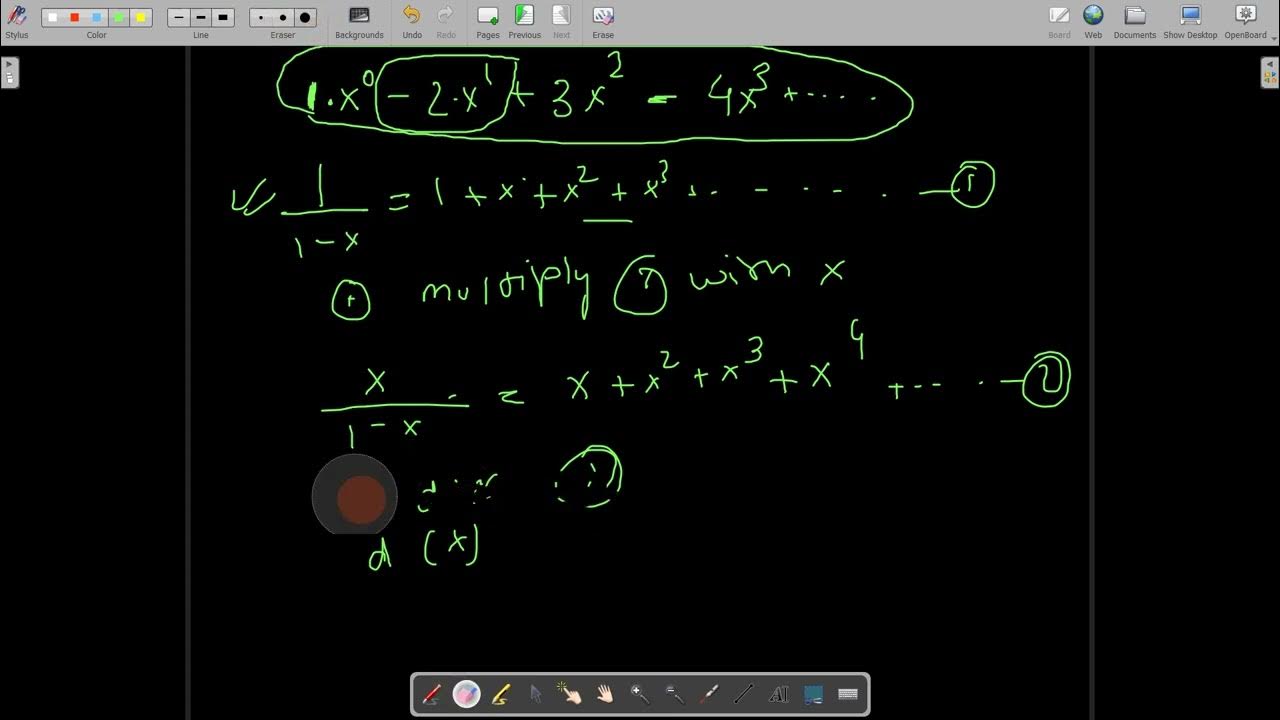 Stylus Color Line Eraser Backgrounds Undo Redo Pages Previous Next Erase Board Web Documents Show Desktop OpenBoard
1·x⁰ - 2·x¹ + 3x² - 4x³ + ....
1/(1-x) = 1 + x + x² + x³ + .. - . . . — ①
① multiply ① with x
x/(1-x) = x + x² + x³ + x⁴ + ... . — ②
d (x)